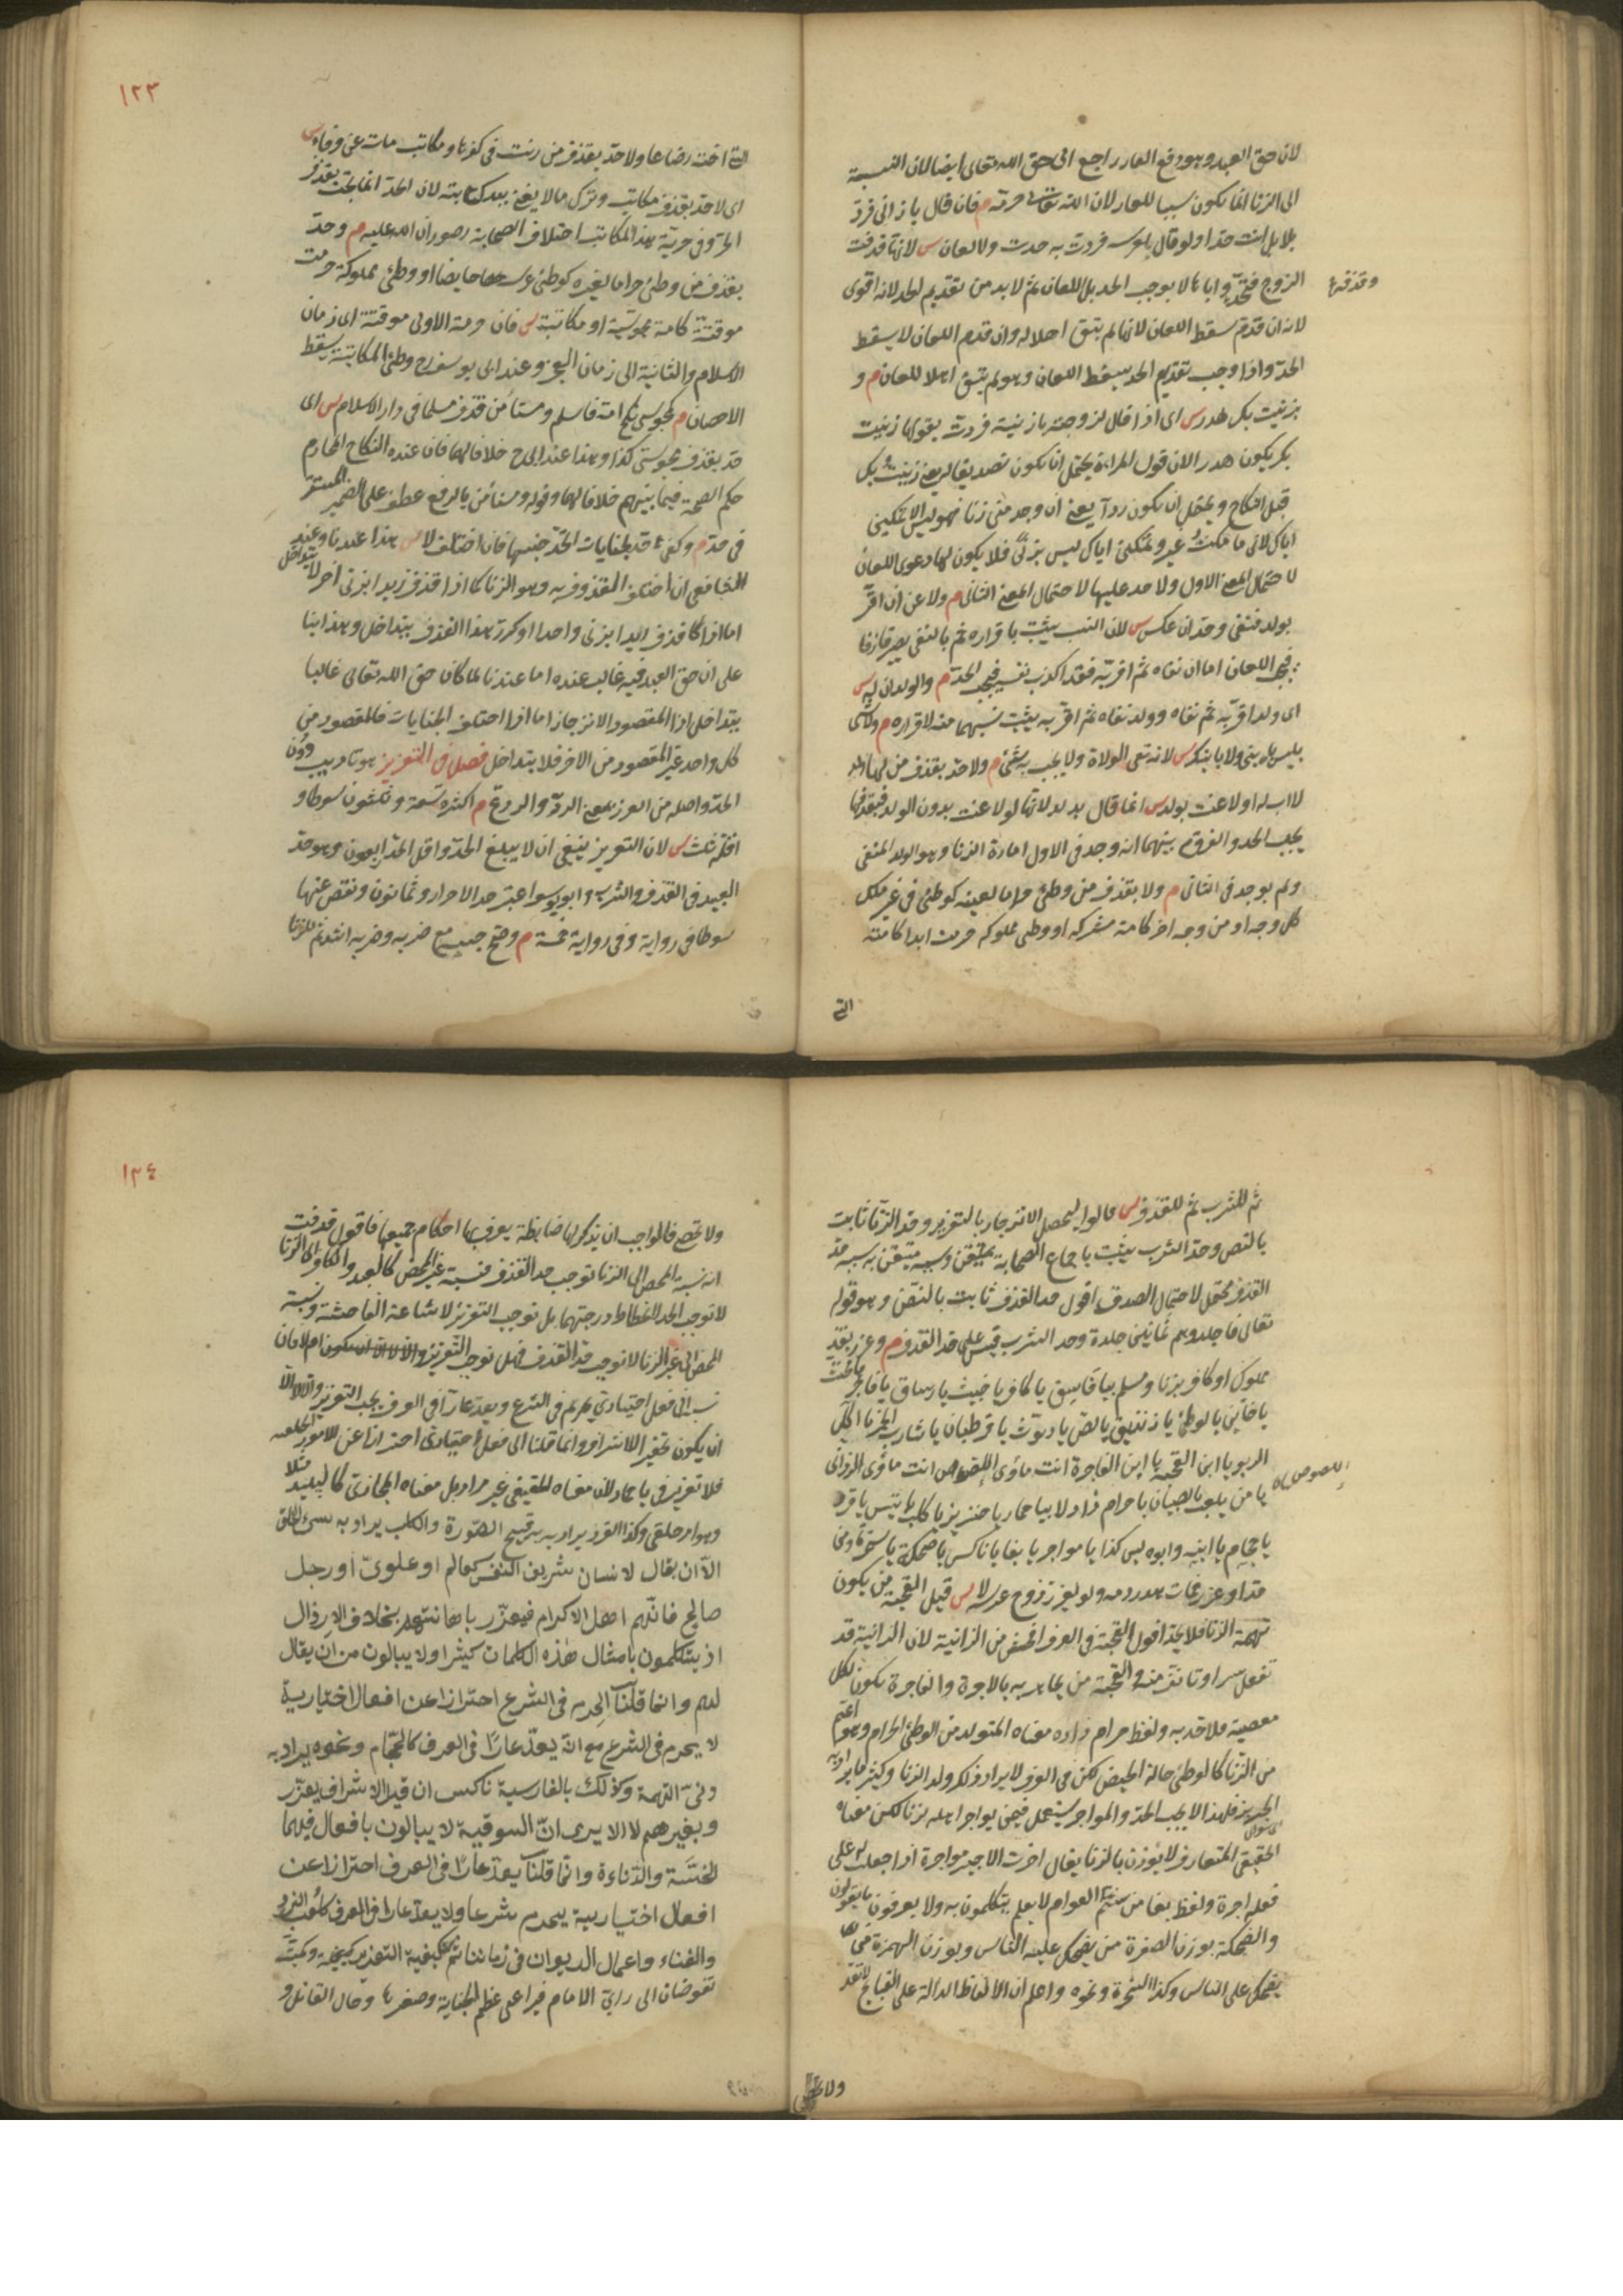 لان حق العبد وهو دفع العار راجع الى حق الله تعالى ايضا لان النسبة
الى الزنا انما يكون سببا للعار لان الله تعالى حرمه م فان قال يا زانى فرد
بلا بل انت حدا ولو قال لعرسه فردت به حدت ولا لعان س لانها قذفت
الزوج فتحد واياها لا يوجب الحد بل اللعان ثم لا بد من تقديم الحد لانه اقوى
وقذفه
لانه ان قدم سقط اللعان لانها لم يبق اهلا له وان قدم اللعان لا يسقط
الحد واذا وجب تقديم الحد سقط اللعان وهو لم يبق اهلا للعان م و
بزنيت بك هدر س اى اذا قال لزوجته يا زنية فردت بقولها زنيت
بك يكون هدرا لان قول المراءة يحتمل ان يكون تصديقا له يعنى زنيت بك
قبل النكاح ويحتمل ان يكون ردا يعنى ان وجد منى زنا فهو ليس الا تمكينى
اياك لانى ما مكنت غيرك وتمكينى اياك ليس بزنى فلا يكون لها دعوى اللعان
لاحتمال المعنى الاول ولا حد عليها لاحتمال المعنى الثانى م ولا عن ان اقر
بولد فنفى وحد ان عكس س لان النسب يثبت باقراره ثم بالنفى يصير قاذفا
فيجب اللعان اما ان نفاه ثم اقر به فقد اكذب نفسه فيجب الحد م والولدان له س
اى ولد اقر به ثم نفاه وولد نفاه ثم اقر به يثبت نسبهما منه لاقراره م ولا شئ
بليس بابنى ولا بابنك س لانه نفى الولادة ولا يجب به شئ م ولا حد بقذف من لها ولد
لا اب له او لاعنت بولد س انما قال بولد لانها لو لاعنت بدون الولد فبقذفها
يجب الحد والفرق بينهما انه وجد فى الاول امارة الزنا وهو الولد المنفى
ولم يوجد فى الثانى م ولا بقذف من وطئ حراما لعينه كوطئ فى غير ملك
كل وجه او من وجه اخر كامة مشتركة او وطى مملوكة حرمت ابدا كامته
التى
١٢٣
التى اخت رضاعا ولا حد بقذف من زنت فى كفرها ومكاتب مات عن وفاء س
اى لا حد بقذف مكاتب وترك ما لا يفى ببدل كتابته لان الحد انما يجب بقذف
الحر وفى حرية هذا المكاتب اختلاف الصحابة رضوان الله عليه م وحد
بقذف من وطئ حراما لغيره كوطئ عرسه حايضا او وطى مملوكة حرمت
موقتة كامة مجوسية او مكاتبة س فان حرمة الاولى موقتة الى زمان
الاسلام والثانية الى زمان العجز وعند ابى يوسف رح وطى المكاتبة يسقط
الاحصان م كمجوسى نكح امه فاسلم ومستأمن قذف مسلما فى دار الاسلام س اى
حد بقذف مجوسى كذا وهذا عند ابى ح خلافا لهما فان عنده النكاح المحارم
حكم الصحة فيما بينهم خلافا لهما وقوله ومستأمن بالرفع عطف على الضمير المستتر
فى حد م وكفى حد لجنايات اتحد جنسها فان اختلف لا س هذا عندنا وعند
الشافعى ان اختلف المقذوف به وهو الزنا كما اذا قذف زيدا بزنى اخر لا يتداخل
اما اذا كما قذف زيدا بزنى واحدا او كرر هذا القذف يتداخل وهذا بنا
على ان حق العبد فيه غالب عنده اما عندنا لما كان حق الله تعالى غالبا
يتداخل اذا المقصود الانزجار اما اذا اختلف الجنايات فالمقصود من
كل واحد غير المقصود من الاخر فلا يتداخل فصل فى التعزير هو تاديب دون
الحد واصله من العزر بمعنى الرد والردع م اكثره تسعة وثلثون سوطا و
اقله ثلث س لان التعزير ينبغى ان لا يبلغ الحد واقل الحد اربعون وهو حد
العبيد فى القذف والشرب وابو يوسف اعتبر حد الاحرار وثمانون ونقص عنها
سوطا فى رواية وفى رواية خمسة م وصح حبسه مع ضربه وضربه اشد ثم للزنا
ثم للشرب ثم للقذف س قالوا ليحصل الانزجار بالتعزير وحد الزنا ثابت
بالنص وحد الشرب يثبت باجماع الصحابة متيقن وسببه متيقن به وسبب حد
القذف محتمل لاحتمال الصدق اقول حد القذف ثابت بالنص وهو قوله
تعالى فاجلدوهم ثمانين جلدة وحد الشرب قيس على حد القذف م وعزر بقذف
مملوك او كافر بزنا ومسلم بيا فاسق يا كافر يا خبيث يا سارق يا فاجر يا مخنث
يا خاين يا لوطى يا زنديق يا لص يا ديوث يا قرطبان يا شارب الخمر يا اكل
الربو يا ابن القحبة يا ابن الفاجرة انت مأوى اللصوص انت مأوى الزوانى
اللصوص
يا من يلعب بالصبيان يا حرام زاد لا بيا حمار يا خنزير يا كلب يا تيس يا قرد
يا حجام يا ابنه وابوه ليس كذا يا مواجر يا بغا يا ناكس يا ضحكة يا سخرة ومن
حد او عزر فمات هدر دمه ولو بعزر زوج عرسه لا س قيل القحبة من يكون
تهمة الزنا فلا يحد اقول القحبة فى العرف افحش من الزانية لان الزانية قد
تفعل سرا وتانف منه والقحبة من يجاهر به بالاجرة والفاجرة يكون بكل
معصية فلا حد به ولفظ حرام زاده معناه المتولد من الوطئ الحرام وهو اعم
من الزنا كالوطئ حالة الحيض لكن فى العرف لا يراد ذلك ولد الزنا وكثيرا ما يراد به
الخبيث فلهذا لا يجب الحد والمواجر يستعمل فيمن يواجر اهله بزنا لكن معناه
الحقيقى المتعارف لا يؤذن بالزنا يقال اجرت الاجير مواجرة اذا جعلت له على
فعله اجرة ولفظ بغا من شتم العوام لا يعلم يتكلمون به ولا يعرفون ما يقولون
والضحكة بوزن الصفرة من يضحك عليه الناس وبوزن الهمزة من
يضحك على الناس وكذا السخرة ونحوه واعلم ان الالفاظ الدالة على القبايح لا تعد
ولا تحصى
١٢٤
ولا تحصى فالواجب ان يذكر لها ضابطة يعرف بها احكام جميعها فاقول قد قلت
ان نسبة المحصن الى الزنا توجب حد القذف فنسبة غير المحصن كالعبد والكافر الى الزنا
لا توجب الحد لانحطاط درجتهما بل توجب التعزير لاشاعة الفاحشة ونسبة
المحصن الى غير الزنا لا توجب حد القذف فهل توجب التعزير ام لا فان
نسب الى فعل اختيارى يحرم فى الشرع ويعد عارا فى العرف يجب التعزير والا لا الا
ان يكون تحقيرا للاشراف وانما قلنا الى فعل اختيارى احترازا عن الامور الخلقية
فلا تعزير فى يا حمار لان معناه الحقيقى غير مراد بل معناه المجازى كالبليد مثلا
وهو امر خلقى وكذا القرد يراد به قبيح الصورة والكلب يراد به سئ الخلق
الا ان يقال لانسان شريف النفس كعالم او علوى او رجل
صالح فانهم اهل الاكرام فيعزر باهانتهم بخلاف الارذال
اذ يتكلمون بامثال هذه الكلمات كثيرا ولا يبالون من ان يقال
لهم وانما قلنا يحرم فى الشرع احترازا عن افعال اختيارية
لا يحرم فى الشرع مع انه يعد عارا فى العرف كالحجام ونحوه يراد به
دنئ الهمة وكذلك بالفارسية ناكس ان قيل الاشراف يعزر
وبغيرهم لا الا يرى ان السوقية لا يبالون بافعال فيها
الخسة والدناءة وانما قلنا يعد عارا فى العرف احترازا عن
افعال اختيارية يحرم شرعا ولا يعد عارا فى العرف كلعب النرد
والغناء واعمال الديوان فى زماننا ثم كيفية التعزير كيفيته وكميته
تفوضان الى راى الامام فيراعى عظم الجناية وصغرها وحال القائل و